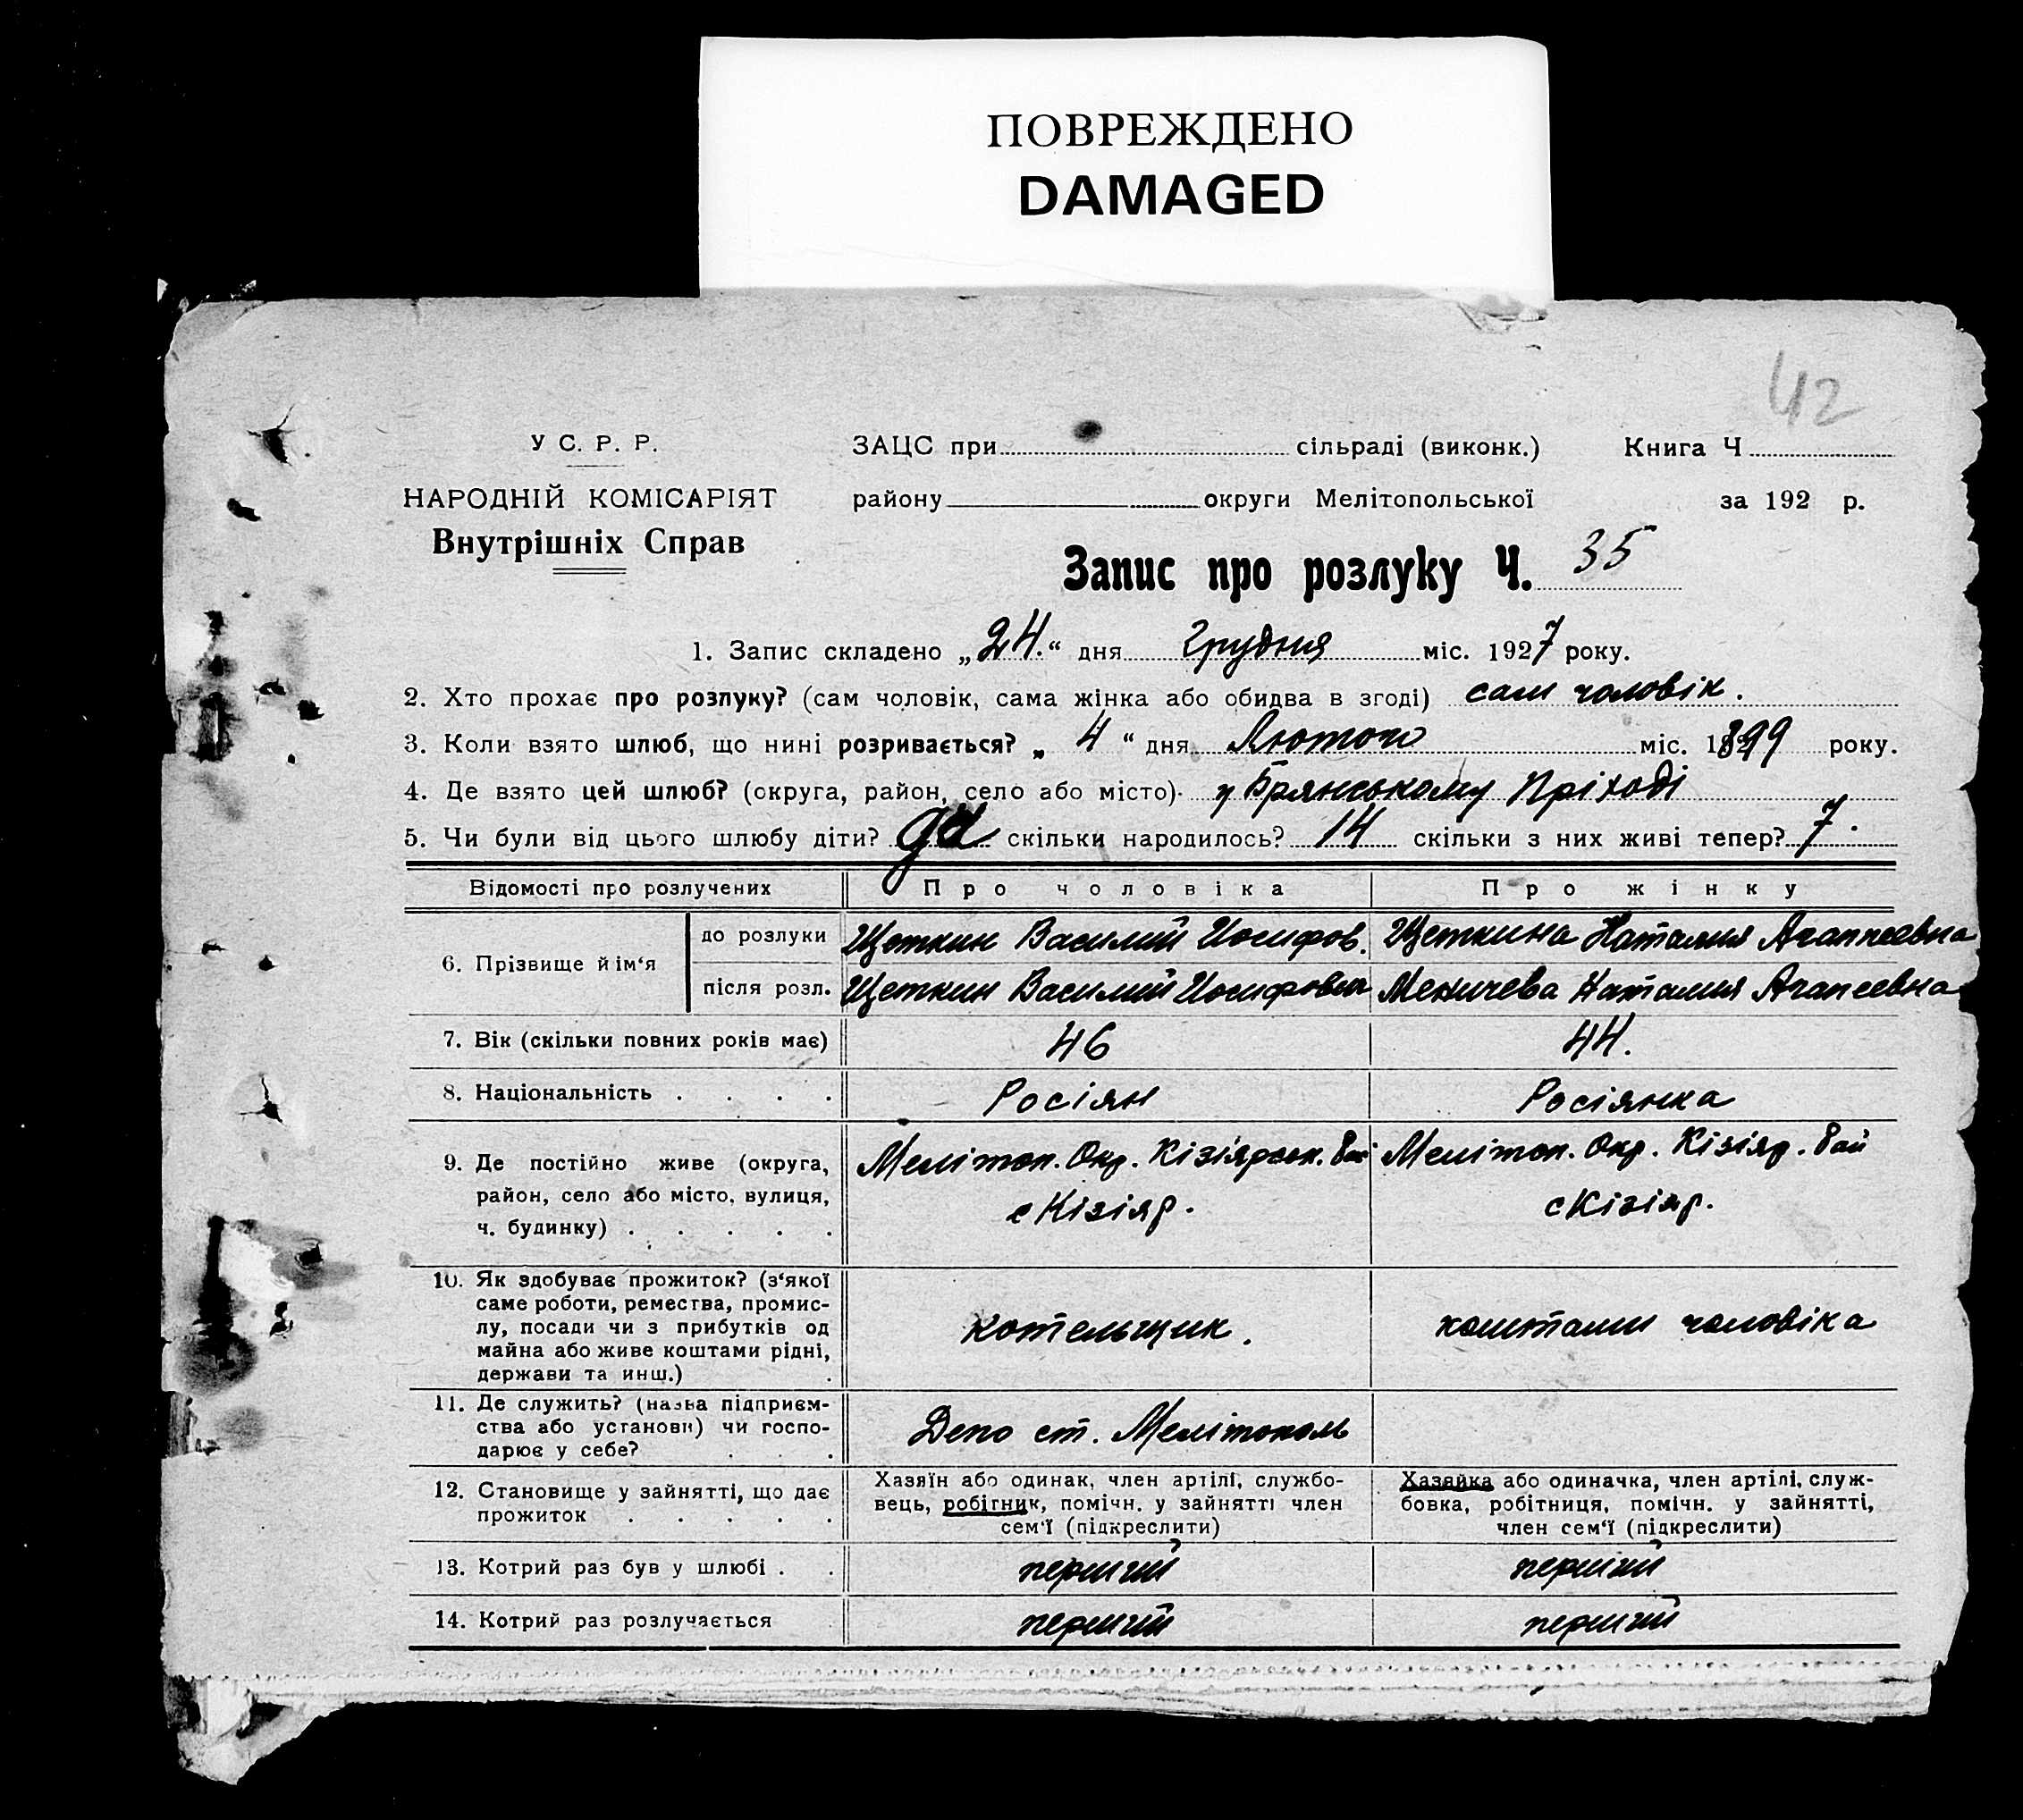 ПОВРЕЖДЕНО
DAMAGED
42
У С. Р. Р.
НАРОДНІЙ КОМІСАРІЯТ
Внутрішніх Справ
ЗАЦС при сільраді (виконк.) Книга Ч
району округи Мелітопольської за 192 р.
Запис про розлуку Ч. 35
1. Запис складено „24.“ дня Грудня міс. 1927 року.
2. Хто прохає про розлуку? (сам чоловік, сама жінка або обидва в згоді) сам чоловік.
3. Коли взято шлюб, що нині розривається? „ 4 “ дня Лютого міс. 1899 року.
4. Де взято цей шлюб? (округа, район, село або місто) у Брянському Пріході
5. Чи були від цього шлюбу діти? да скільки народилось? 14 скільки з них живі тепер? 7.
Відомості про розлучених Про чоловіка Про жінку
6. Прізвище й ім‘я
до розлуки Щеткин Василий Иосифов. Щеткина Наталия Агаппеевна
після розл. Щеткин Василий Иосифович Меничева Наталия Агапеевна
7. Вік (скільки повних років має) 46 44.
8. Національність . . . . Росіян Росіянка
9. Де постійно живе (округа,
район, село або місто, вулиця,
ч. будинку) . . . . .
Меліт‌оп. Окр. Кізіярськ. Рай
с Кізіяр.
Мелітоп. Окр. Кізіяр. Рай
с Кізіяр.
10. Як здобуває прожиток? (з‘якої
саме роботи, ремества, промис-
лу, посади чи з прибутків од
майна або живе коштами рідні,
держави та инш.) .
котельщик.
коштами чоловіка
11. Де служить? (назва підприєм-
ства або установи) чи госпо-
дарює у себе? . . .
Депо ст. Мелітополь
12. Становище у зайнятті, що дає
прожиток . . . . .
Хазяїн або одинак, член артілі, службо-
вець, робітник, помічн. у зайнятті член
сем‘ї (підкреслити)
Хазяйка або одиначка, член артілі, служ-
бовка, робітниця, помічн. у зайнятті,
член сем‘ї (підкреслити)
13. Котрий раз був у шлюбі . . перший перший
14. Котрий раз розлучається . перший перший